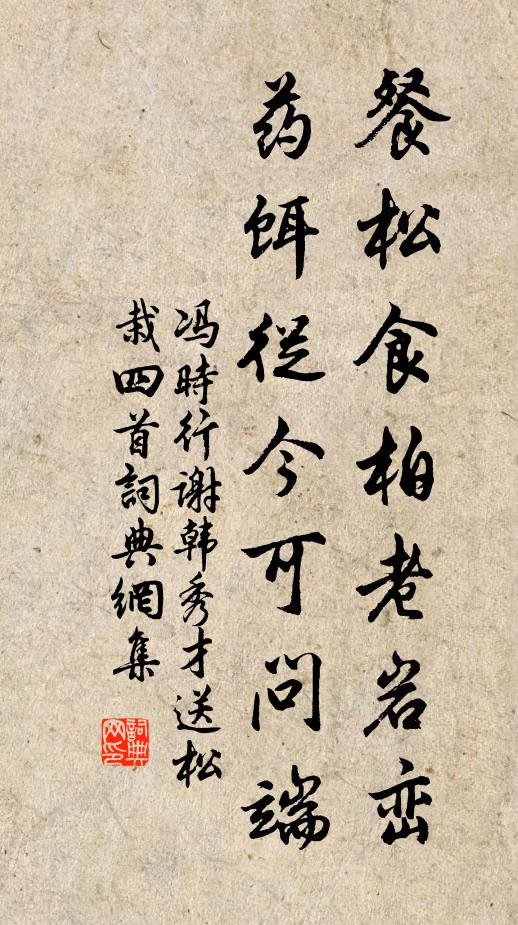 餐松食柏老岩峦
药饵从今可问端
冯時行谢韩秀才送松
栽四首詞典網集
詞典网印